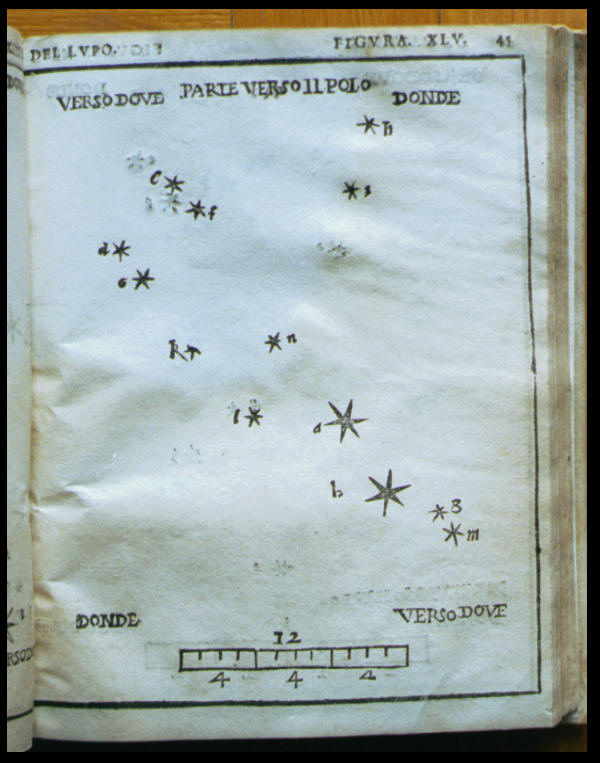 DEL LVPO. FIGVRA. XLV. 45
VERSO DOVE PARTE VERSO IL POLO DONDE
h
c
s
f
d
e
k n
l
a
b
g
m
DONDE VERSO DOVE
12
4 4 4